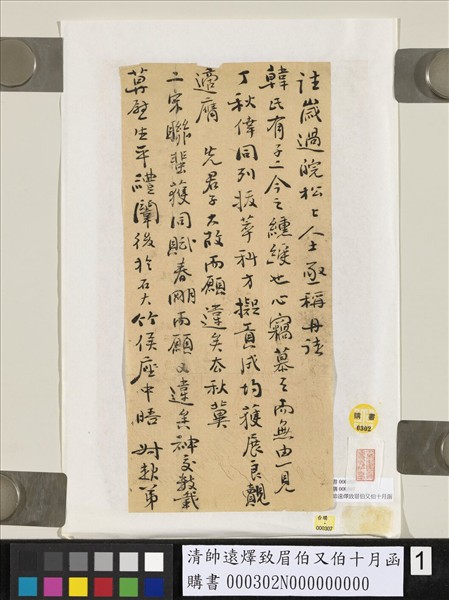 往歲過皖松上人士亟稱丹徒
韓氏有子二今之也心竊慕之而無由一見
丁秋偉同列拔萃科方擬貢成均獲展良覯
適膺 先君子大故而願違矣去秋冀
二宋聯蜚獲同賦春明而願又違矣神交數載
莫慰生平禮闈後於石大竹侯座中晤
購書
0302
000307
清師遠燡致眉伯又伯十月函
購書 000302N000000000
1